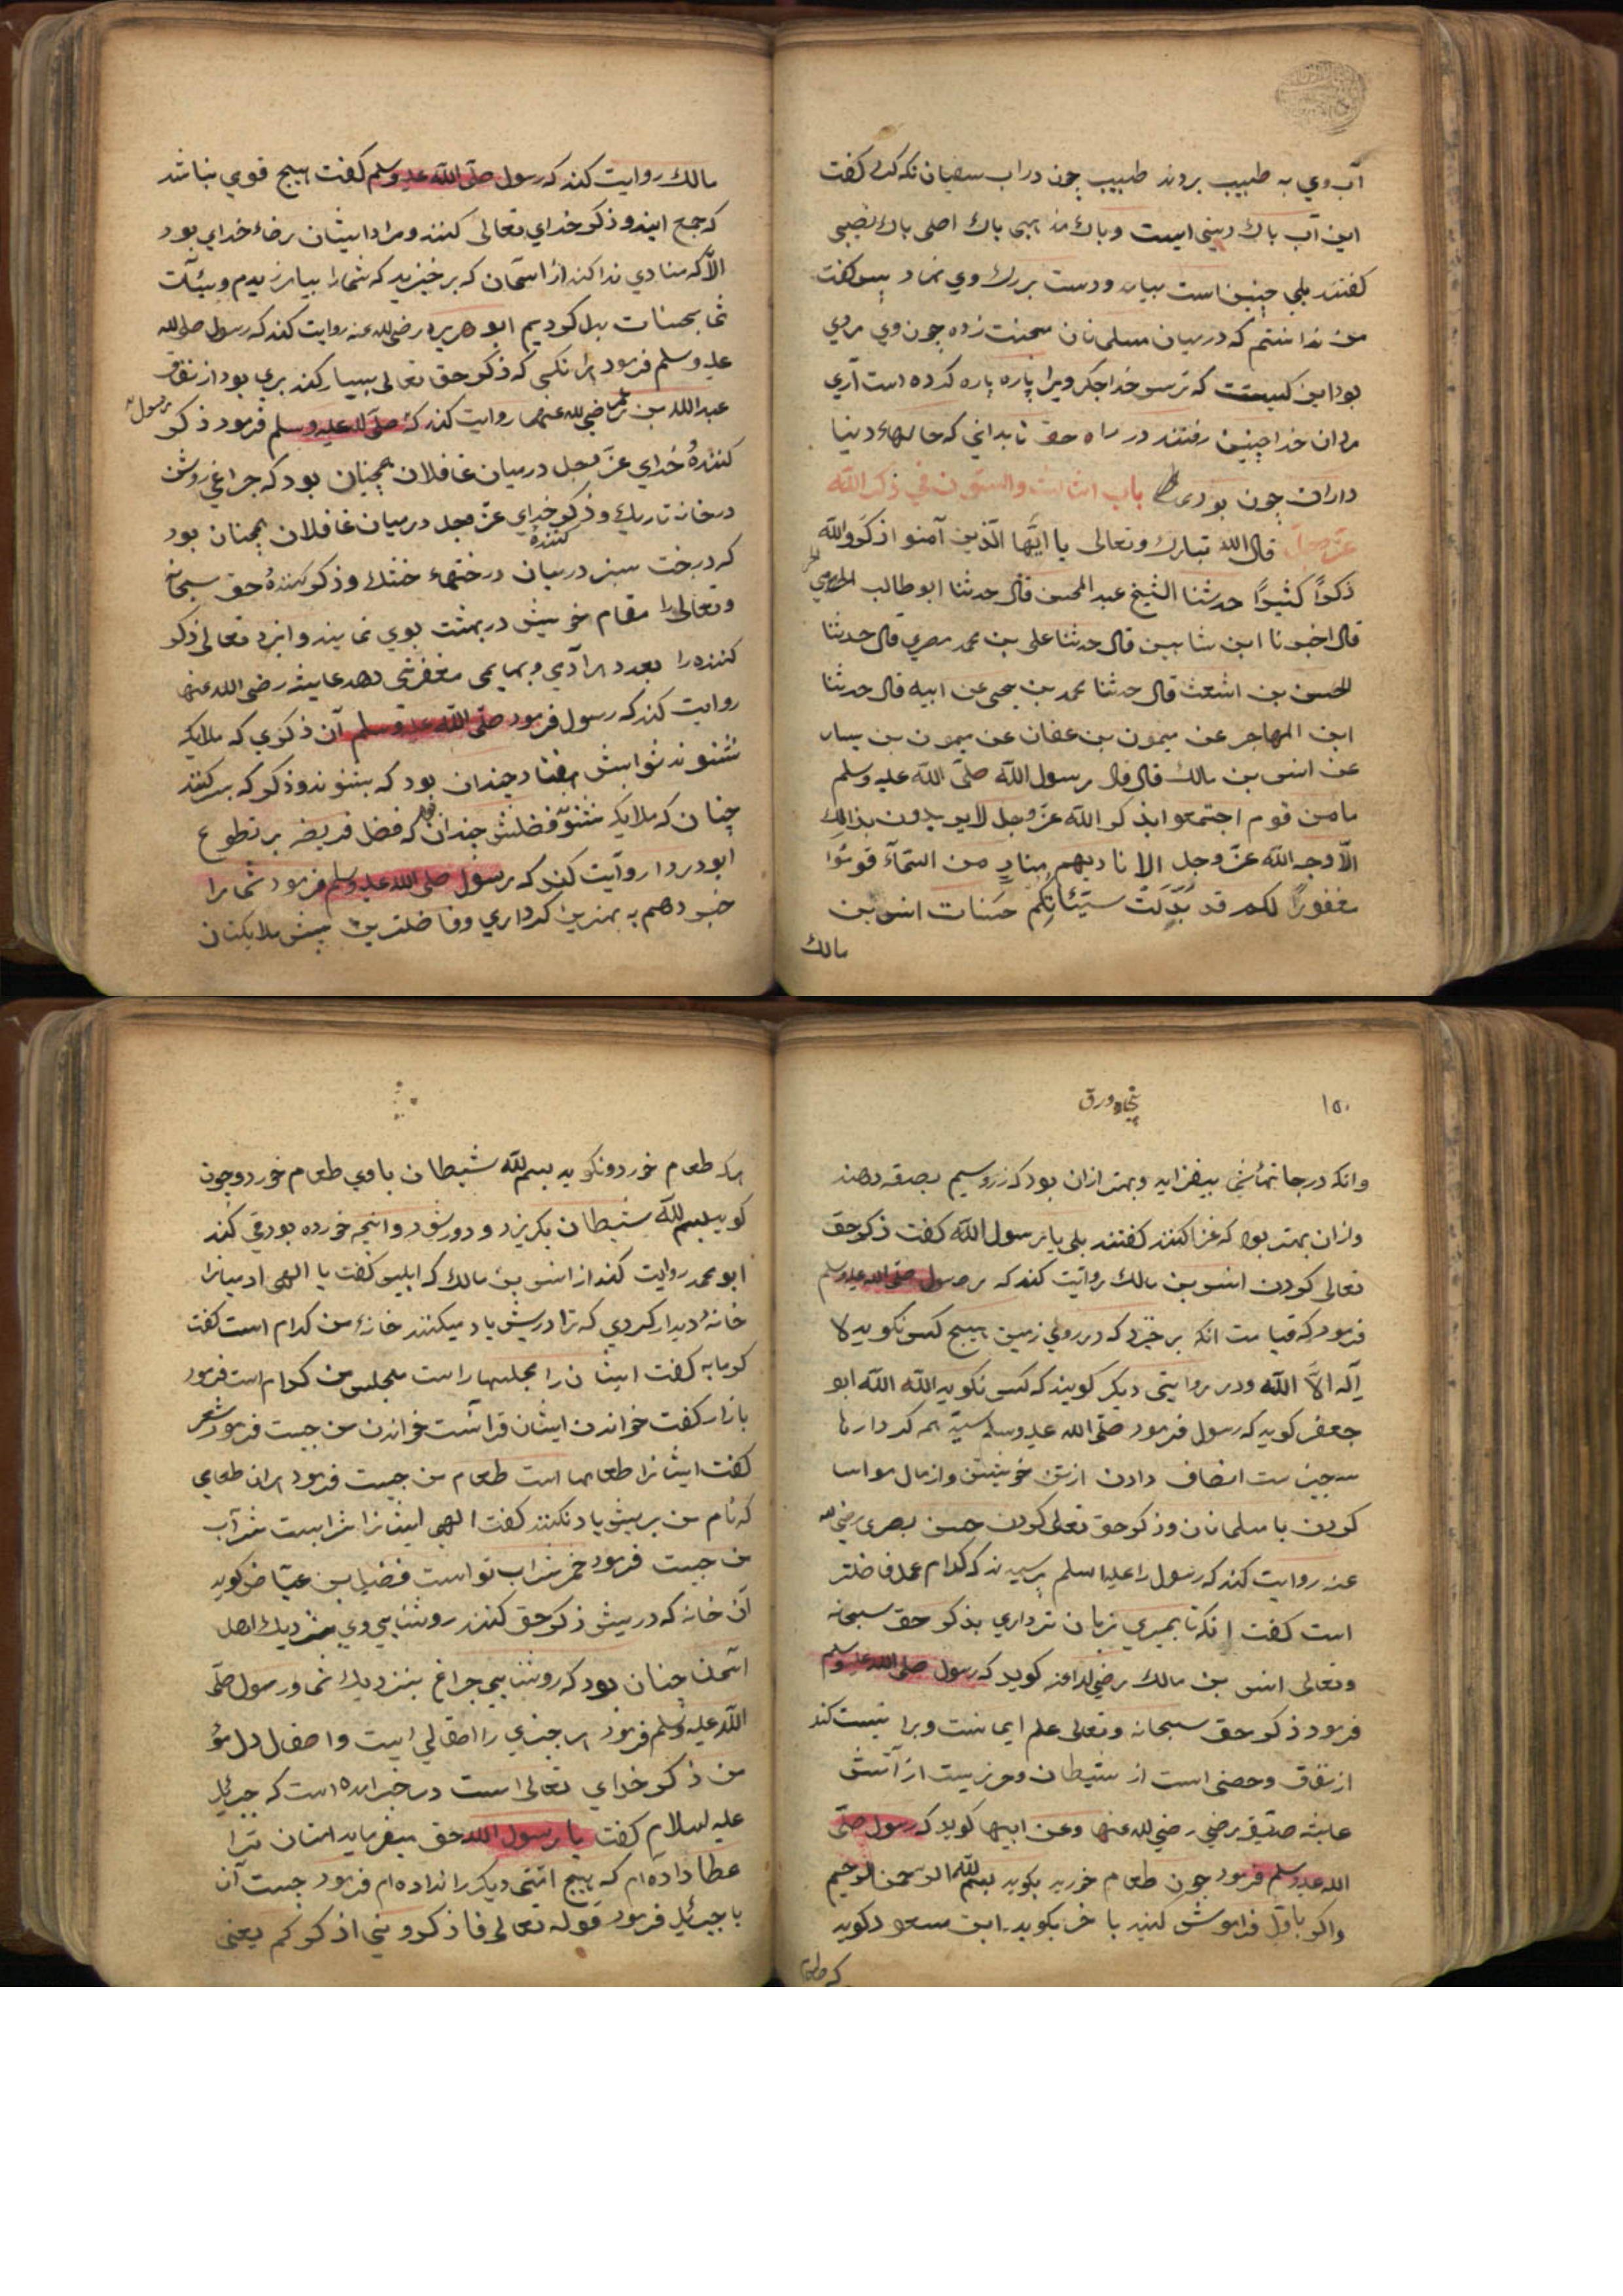 آب وي به طبيب بردند طبيب چون در اب سفيان نكه كرد كفت
اين آب باك ديني است و باك اصلى باك نصيبى
كفتند بلى چنين است بيامد و دست بر رك وي نهاد پس كفت
من ندانستم كه در ميان مسلمانان محنت زده چون وي مردي
بود اين كيست كه ترس خدا جكر ويرا پاره پاره كرده است آري
مردان خدا چنين رفتند در راه حق تا بداني كه حالهاء دينا
داران چون بودى باب الثالث والستون في ذكر الله
عزّ وجلّ قال الله تبارك وتعالى يا ايّها الّذين آمنو اذكروالله
ذكرًا كثيرًا حدثنا الشيخ عبد المحسن قال حدثنا ابو طالب
قال اخبرنا ابن شاهين قال حدثنا على بن محمد مصري قال حدثنا
الحسن بن اشعث قال حدثنا محمد بن يحيى عن ابيه قال حدثنا
ابن المهاجر عن ميمون بن عفان عن ميمون بن بسار
عن انس بن مالك قال قال رسول الله صلّى الله عليه وسلم
ما من قوم اجتمعوا بذكر الله عزّ وجل لا يريدون بذالك
الّا وجه الله عزّ وجل الا ناديهم منادٍ من السّمآء قوموا
مغفورًا لكم قد بُدِّلَت سيّئاتِكم حسنات انس بن
مالك
مالك روايت كند كه رسول صلّى الله عليه وسلم كفت هيچ قومي نباشد
كه جمع ايند و ذكر خداي تعالى كنند و مراد ايشان رضاء خداي بود
الّا كه منادي ندا كند از اسمان كه برخيزيد كه شما را بيامرزيدم وسيّئآت
شما بحسنات بدل كرديم ابو هريره رضى لله عنه روايت كند كه رسول صلى لله
عليه وسلم فرمود هرانكسى كه ذكر حق تعالى بسيار كند بري بود از نفاق
عبد الله بن عمر رضي لله عنهما روايت كند كه صلّى لله عليه وسلم فرمود ذكر
رسول
كنندهٔ خداي عزّ وجل در ميان غافلان همچنان بود كه چراغي روشن
در خانه تاريك و ذكر خداي عزّ وجل در ميان غافلان همچنان بود
كننده
كه درخت سبز در ميان درختهء خشك و ذكر كنندهٔ حق سبحانه
وتعالى را مقام خويش در بهشت بوي نمايند و ايزد تعالى ذكر
كننده را بعدد هر آدمي و بهايمى مغفرتى دهد عايشه رضى الله عنها
روايت كند كه رسول فرمود صلّى الله عليه وسلم آن ذكري كه ملايكه
نشنوند ثوابش هفتاد چندان بود كه بشنوند و ذكر كه سر كنند
چنان كه ملايكه نشنود فضلش چندان كه فضل فريضه بر تطوع
ابو دردا روآيت كند كه رسول صلى الله عليه وسلم فرمود شما را
خبر دهم به بهترين كرداري و فاضلترين پيش ملايكتان
١٥٠
پنجاه ورق
وانكه در جانهاشي بيفزايد و بهتر ازان بود كه زر و سيم بصدقه دهند
وزان بهتر بود كه غزا كنند كفتند بلى يا رسول الله كفت ذكر حق
تعالى كردن انس بن مالك روآيت كند كه رسول صلى الله عليه وسلم
فرمود كه قيامت انكه برخيزد كه در روي زمين هيچ كس نكويد لا
آله الّا الله ودر روايتى ديكر كويند كه كسى نكويد الله الله ابو
جعفر كويد كه رسول فرمود صلّى الله عليه وسلم سيّد همه كردارها
سه چيز ست انصاف دادن از تن خويشتن و از مال مواسا
كردن با مسلمانان و ذكر حق تعالى كردن حسن بصرى رضي لله
عنه روايت كند كه رسول را عليه السلم پرسيدند كه كدام عمل فاضلتر
است كفت انكه تا بميري زبان تر داري بذكر حق سبحانه
وتعالى انس بن مالك رضي لله عنه كويد كه رسول صلى الله عليه وسلم
فرمود ذكر حق سبحانه وتعالى علم ايمانست وبرا تيست كند
از نفاق وحصنى است از شيطان وحرزيست از آتش
عايشه صديقه رضي رضي لله عنها وعن ابيها كويد كه رسول صلّى
الله عليه وسلم فرمود چون طعام خوريد بكويد بسم لله الرحمن الرحيم
واكر باوّل فراموش كنيد با خر بكويد ابن مسعود كويد
كه طعام
هركه طعام خورد و نكويد بسم لله شيطان باوي طعام خورد وچون
كويد بسم لله شيطان بكريزد و دور شود وانچه خورده بود قى كند
ابو محمد روايت كند از انس بن مالك كه ابليس كفت يا الهى ادميانرا
خانهٔ ديدار كردي كه ترا دريش ياد ميكنند خانهٔ من كدام است كفت
كرمابه كفت ايشان را مجلسها راست مجلس من كدام است فرمود
بازار كفت خواندن ايشان قرآنست خواندن من چيست فرمود شعر
كفت ايشانرا طعامها است طعام من چيست فرمود هران طعامي
كه نام من بريش ياد نكنند كفت الهى ايشانرا شرابست شرآب
من چيست فرمود خمر شراب تو است فضيل بن عياض كويد
آن خانه كه دريش ذكر حق كنند روشنايي وي نزديك اهل
اسمان چنان بود كه روشنايي چراغ بنزديك شما و رسول صلّى
الله عليه وسلم فرمود هر چيزي را صقالي است و صقال دل مؤ
من ذكر خداي تعالى است در خبر امده است كه جبرئيل
عليه لسلام كفت يا رسول الله حق ميفرمايد امتان ترا
عطا داده ام كه هيچ امّتى ديكر را نداده ام فرمود چيست آن
يا جبرئيل فرمود قوله تعالى فاذكروني اذكركم يعنى